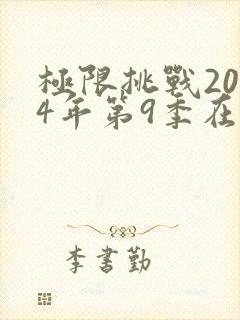 極限挑戰20
4年第9季在
李書勤